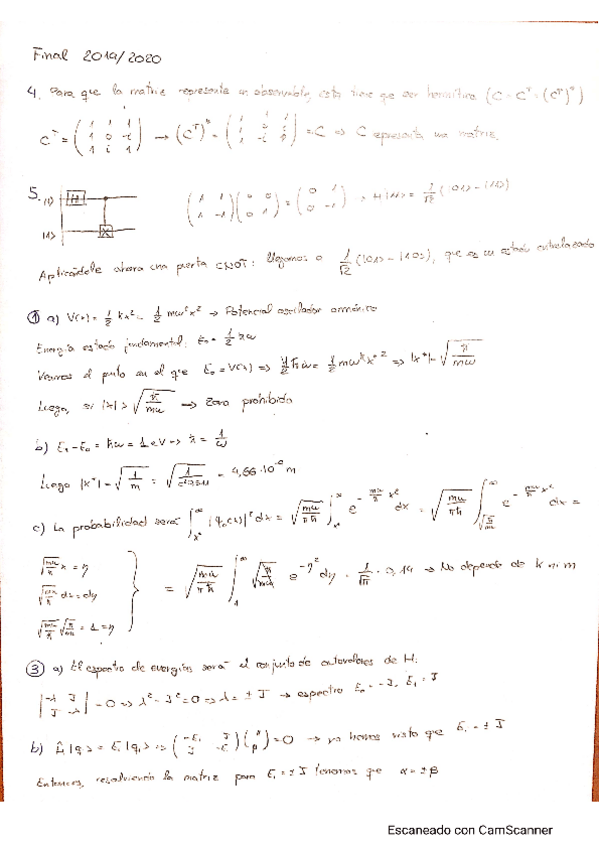 Final 2019/2020
4. Para que la matriz represente un observable, esta tiene que ser hermítica (C = C^† = (C^T)^*)
C^T = (1 1 1; 1 0 -i; 1 i 1) → (C^T)^* = (1 1 1; 1 0 i; 1 -i 1) = C ⇒ C representa un matriz.
5. |1> H
|1> X
(1 1; 1 -1)(0 0; 0 1) = (0 1; 0 -1) → H|1> = 1/√2 (|01> - |11>)
Aplicándole ahora una puerta CNOT: llegamos a 1/√2 (|01> - |10>), que es un estado entrelazado
① a) V(x) = 1/2 kx² = 1/2 mω²x² → Potencial oscilador armónico
Energía estado fundamental: E₀ = 1/2 ħω
Veamos el punto en el que E₀ = V(x) ⇒ 1/2 ħω = 1/2 mω² x*² ⇒ |x*| = √(ħ/mω)
Luego, si |x| > √(ħ/mω) → Zona prohibida
b) E₁ - E₀ = ħω = 1 eV → ħ = 1/ω
Luego |x*| = √(1/m) = = 4,66·10 m
c) La probabilidad será ∫_{x*}^∞ |φ₀(x)|² dx = √(mω/πħ) ∫_{x*}^∞ e^{-mω/ħ x²} dx = √(mω/πħ) ∫_{√(ħ/mω)}^∞ e^{-mω/ħ x²} dx =
√(mω/ħ) x = η
√(mω/ħ) dx = dη
√(mω/ħ) √(ħ/mω) = 1 = η
= √(mω/πħ) ∫_1^∞ √(ħ/mω) e^{-η²} dη = 1/√π · 0,14 → No depende de k ni m
③ a) El espectro de energías será el conjunto de autovalores de H:
|-λ J; J -λ| = 0 ⇒ λ² - J² = 0 ⇒ λ = ± J → espectro E₀ = -J, E₁ = J
b) Ĥ|φᵢ> = Eᵢ|φᵢ> ⇒ (-Eᵢ J; J -Eᵢ)(α; β) = 0 → ya hemos visto que Eᵢ = ± J
Entonces, resolviendo la matriz para Eᵢ = ± J tenemos que α = ± β
Escaneado con CamScanner